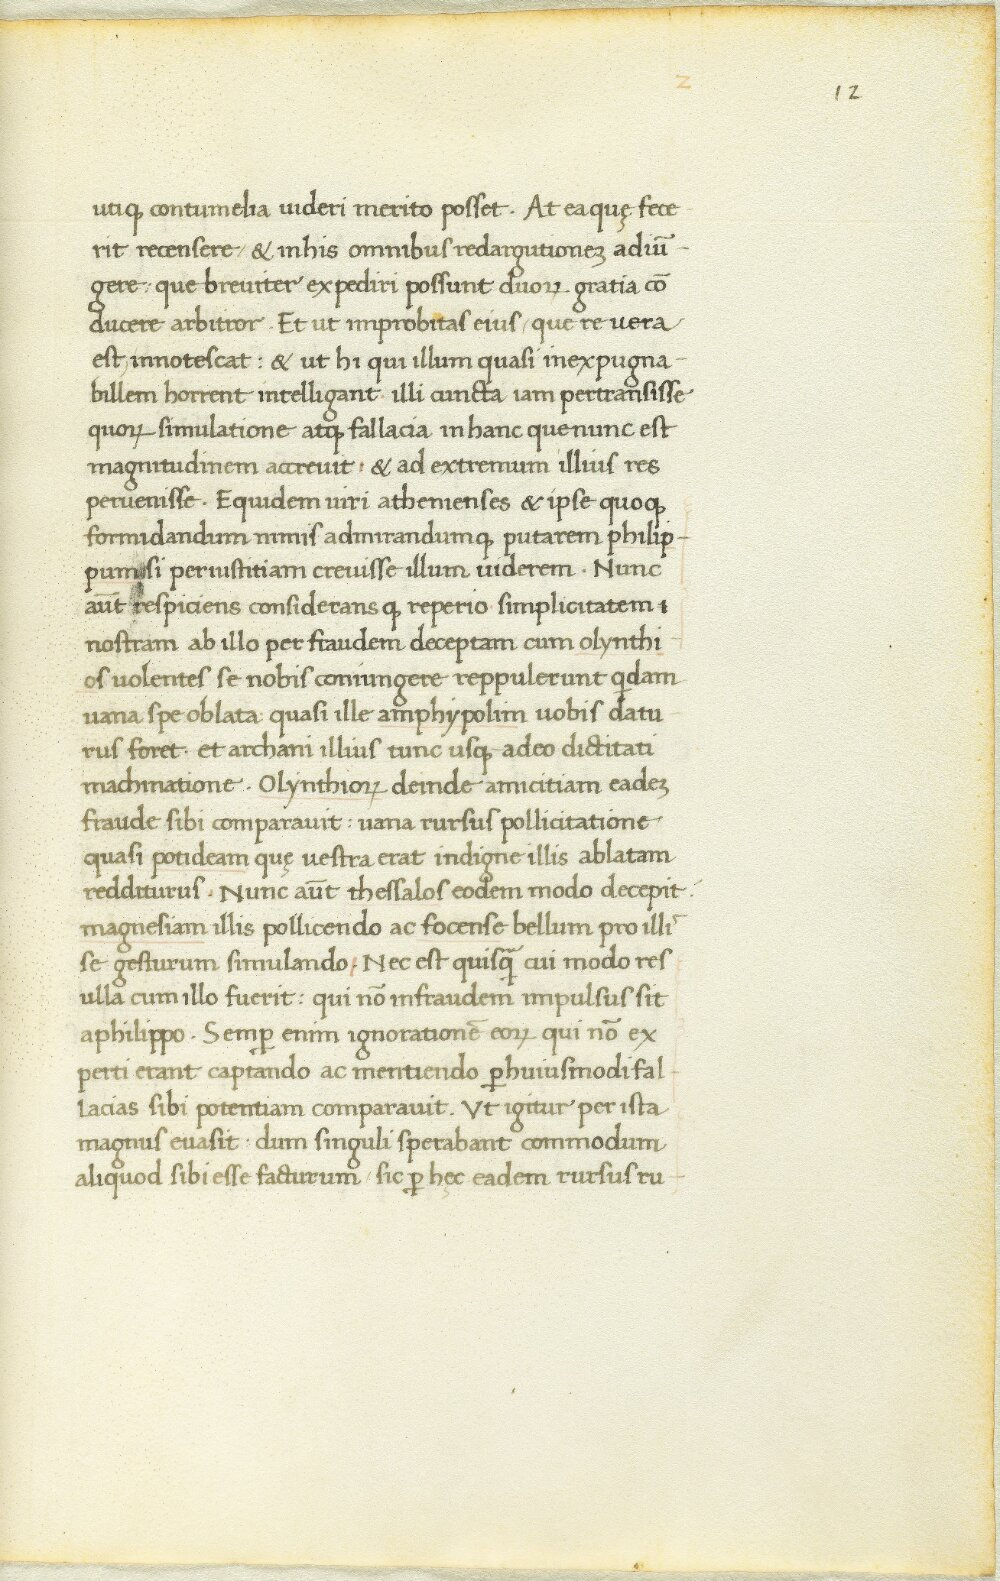 2
12
utiqꝫ contumelia uideri merito posset. At ea quę fece
rit recensere / & in his omnibus redargutioneꝫ adiū-
gere: que breuiter expediri possunt duoꝝ gratia cō
ducere arbitror. Et ut improbitas eius / que re vera
est, innotescat: & ut hi qui illum quasi inexpugna-
billem horrent intelligant illi cuncta iam pertransisse
quoꝝ simulatione atqꝫ fallacia in hanc que nunc est
magnitudinem accreuit: & ad extremum illius res
peruenisse. Equidem uiri athenienses & ipse quoqꝫ
formidandum nimis admirandumqꝫ putarem philip-
pum si per iustitiam creuisse illum uiderem. Nunc
aūt respiciens consideransqꝫ reperio simplicitatem
nostram ab illo per fraudem deceptam cum olynthi
os uolentes se nobis coniungere reppulerunt qdam
uana spe oblata quasi ille amphypolim uobis datu
rus foret. et archani illius tunc usqꝫ adeo dictitati
machinatione. Olynthioꝝ deinde amicitiam eadeꝫ
fraude sibi comparauit: uana rursus pollicitatione
quasi potideam quę uestra erat indigne illis ablatam
redditurus. Nunc aūt thessalos eodem modo decepit:
magnesiam illis pollicendo ac focense bellum pro illi᷒
se gesturum simulando. Nec est quisq̄ cui modo res
ulla cum illo fuerit: qui nō in fraudem impulsus sit
a philippo. Semꝑ enim ignorationē eoꝝ qui nō ex
perti erant captando ac mentiendo ꝑ huiusmodi fal-
lacias sibi potentiam comparauit. Vt igitur per ista
magnus euasit: dum singuli sperabant commodum
aliquod sibi esse facturum / sic ꝑ hęc eadem rursus ru-